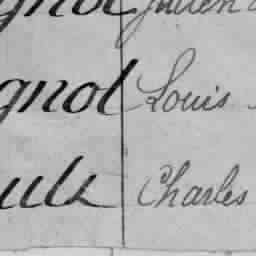 gnol Julien
gnol Louis
ult Charles